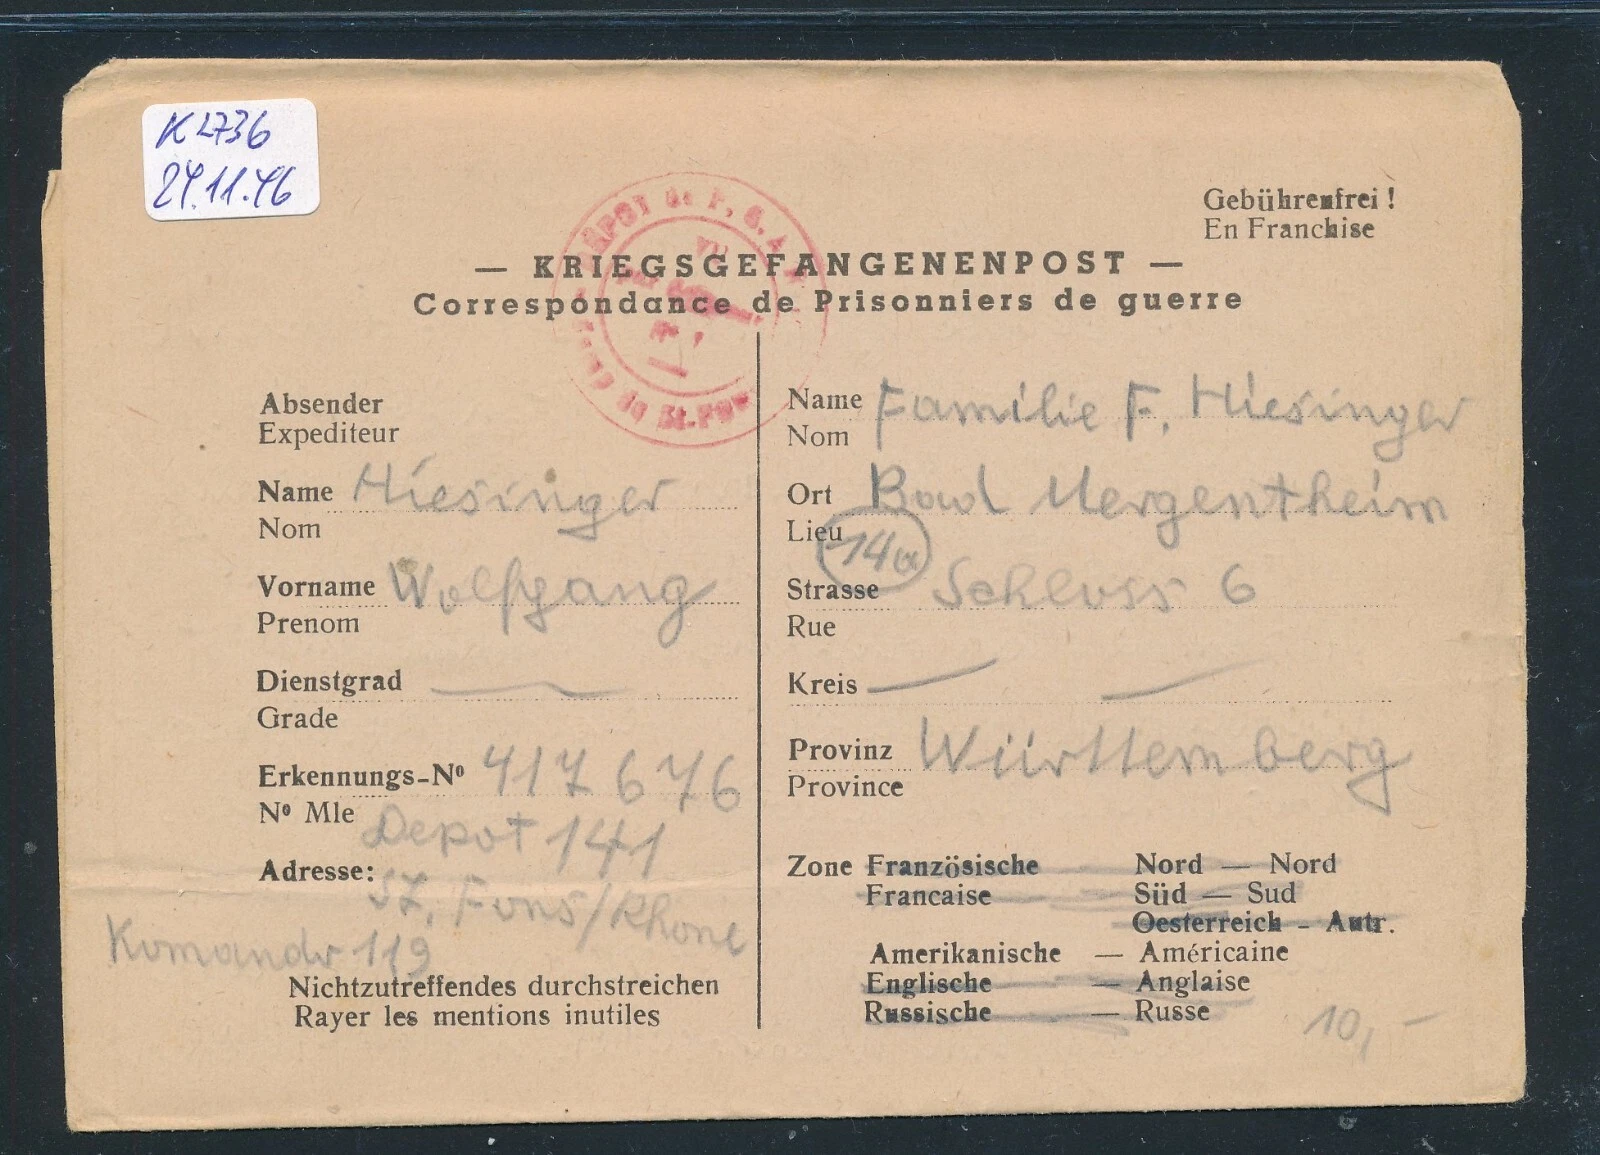 K 2736
24.11.46
Gebührenfrei !
En Franchise
DEPOT de P. G. A
Camp de St-Fons
— KRIEGSGEFANGENENPOST —
Correspondance de Prisonniers de guerre
Absender
Expediteur
Name Hiesinger
Nom
Vorname Wolfgang
Prenom
Dienstgrad —
Grade
Erkennungs-Nº 417 676
Nº Mle
Depot 141
Adresse:
St. Fons/Rhone
Komando 119
Nichtzutreffendes durchstreichen
Rayer les mentions inutiles
Name Familie F. Hiesinger
Nom
Ort Bad Mergentheim
Lieu
14a
Strasse Schloss 6
Rue
Kreis — —
Provinz Württemberg
Province
Zone Französische Nord — Nord
Francaise Süd — Sud
Oesterreich - Autr.
Amerikanische — Américaine
Englische — Anglaise
Russische — Russe
10,-